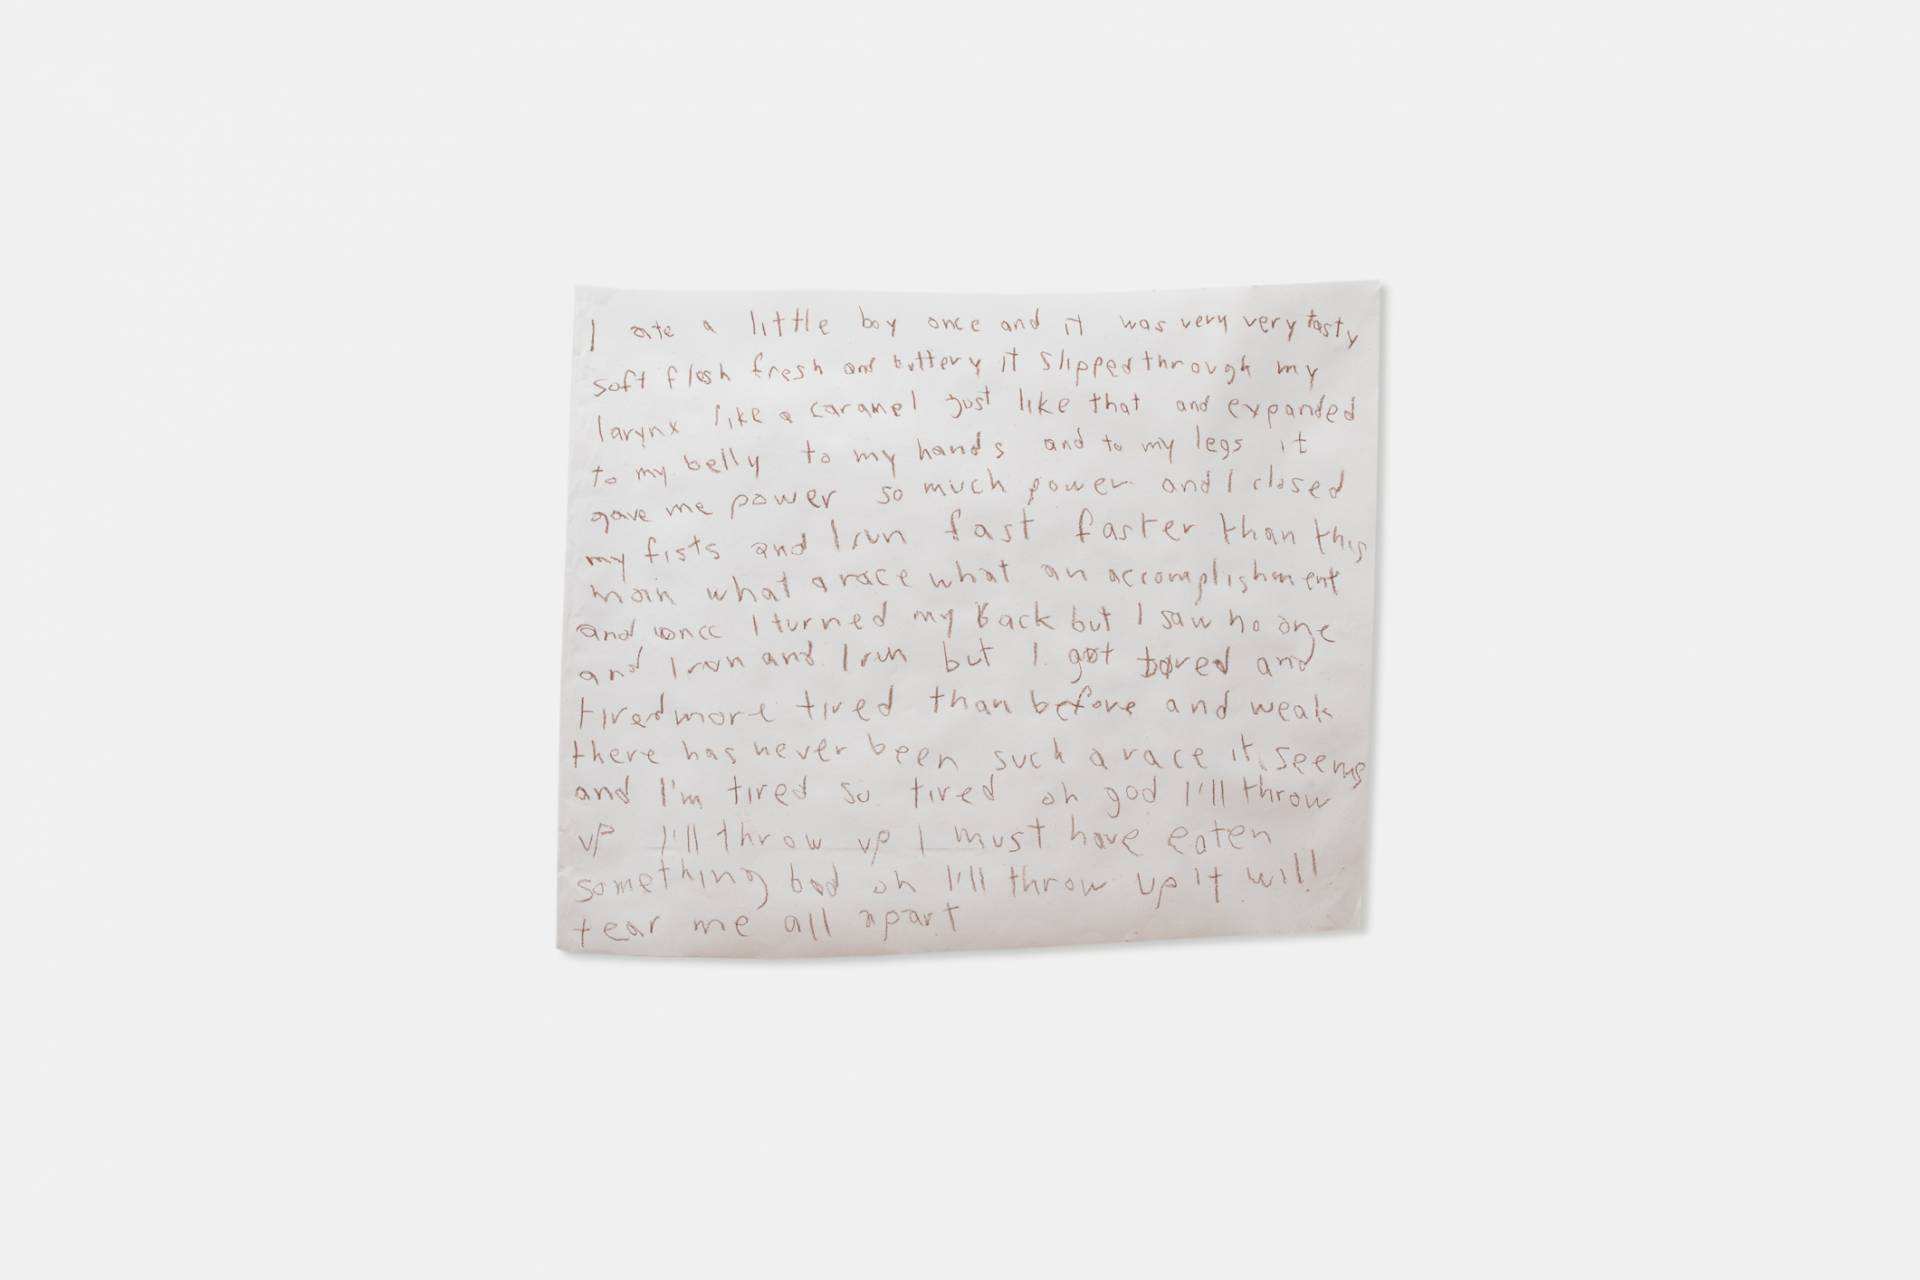 I ate a little boy once and it was very very tasty
soft flesh fresh and buttery it slipped through my
larynx like a caramel just like that and expanded
to my belly to my hands and to my legs it
gave me power so much power and I closed
my fists and I run fast faster than this
main what a race what an accomplishment
and once I turned my back but I saw no one
and I run and I run but I got bored and
tired more tired than before and weak
there has never been such a race it seems
and I'm tired so tired oh god I'll throw
up I'll throw up I must have eaten
something bad oh I'll throw up it will
tear me all apart